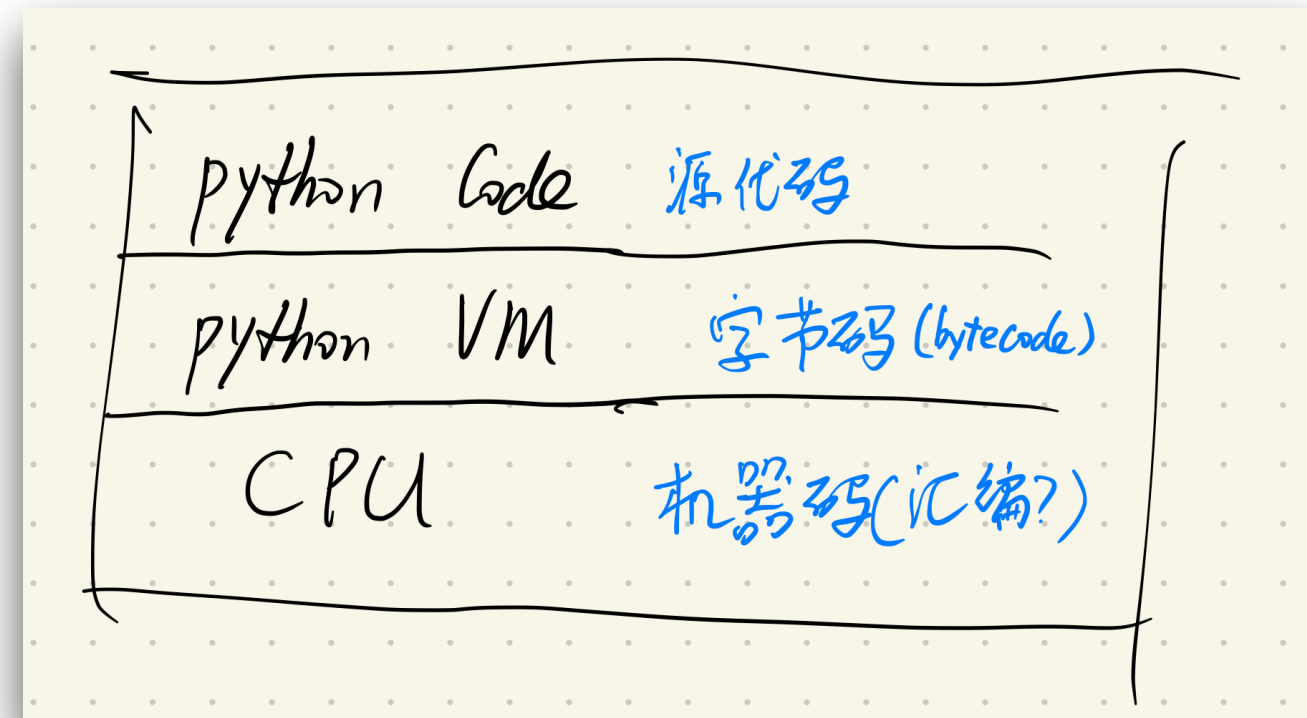 python Code 源代码
python VM 字节码(bytecode)
CPU 机器码(汇编?)